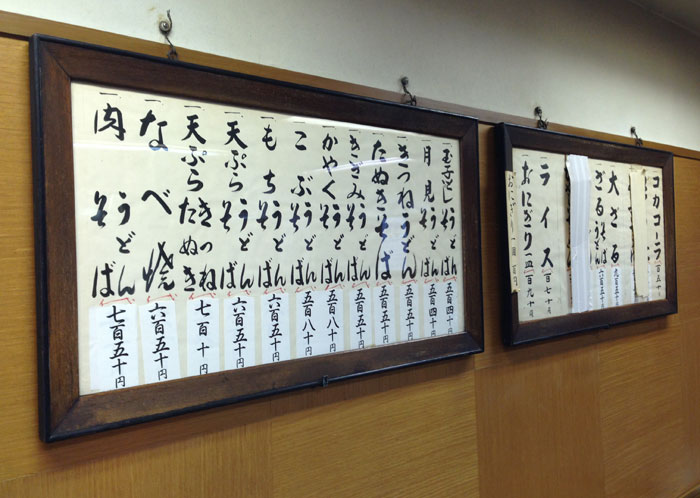 一玉子とじ うどん そば 五百四十円
一月見 うどん そば 五百四十円
一きつねうどん 五百五十円
一たぬきそば 五百五十円
一きざみ うどん そば 五百五十円
一かやく うどん そば 五百八十円
一こぶ うどん そば 五百八十円
一もち うどん そば 六百五十円
一天ぷら うどん そば 六百五十円
一天ぷら きつね たぬき 七百十円
一なべ焼 六百五十円
一肉 うどん そば 七百五十円
コカコーラ
大ざる
ざるうどん 六百五十円
一ライス 百七十円
一おにぎり 一皿 百九十円
おにぎり 一個 百円